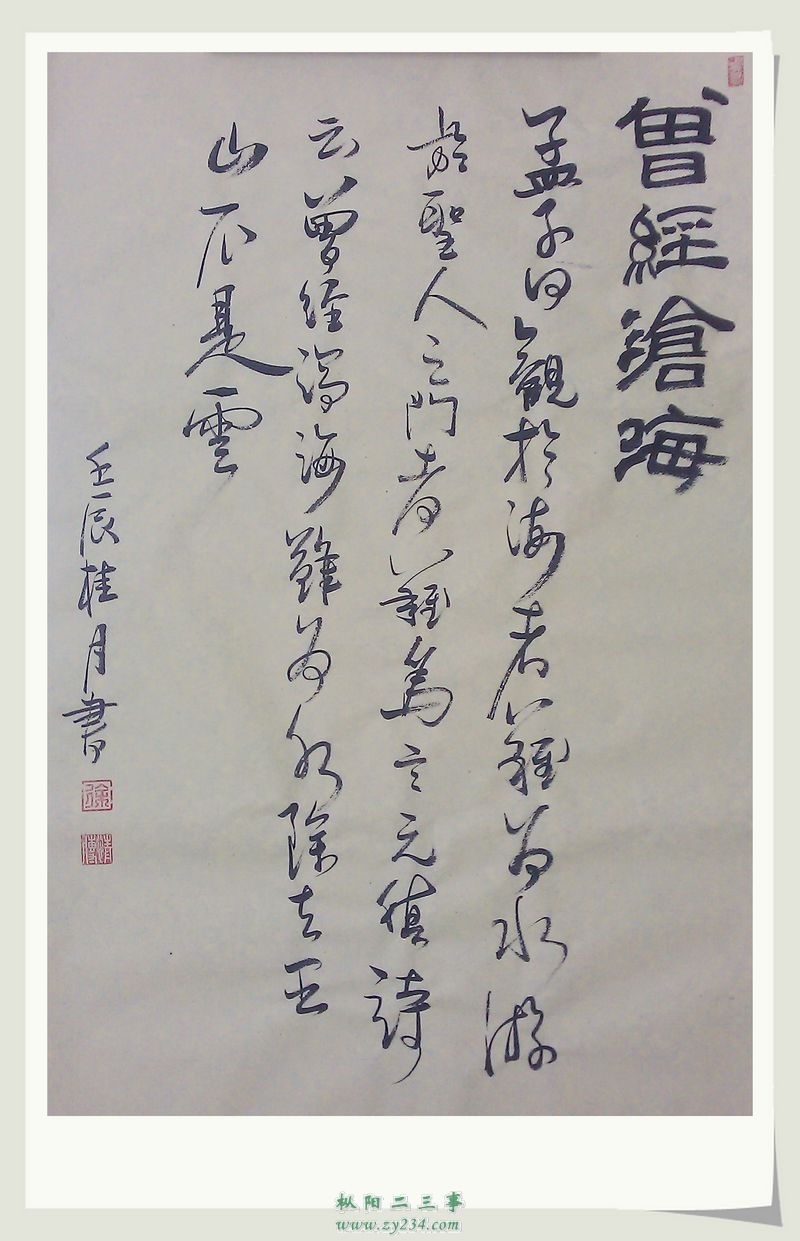 曾經滄海
孟子曰觀於海者難為水游
於聖人之門者難為言元稹詩
云曾經滄海難為水除去巫
山不是雲
壬辰桂月書
徐
枞阳二三事
www.zy234.com